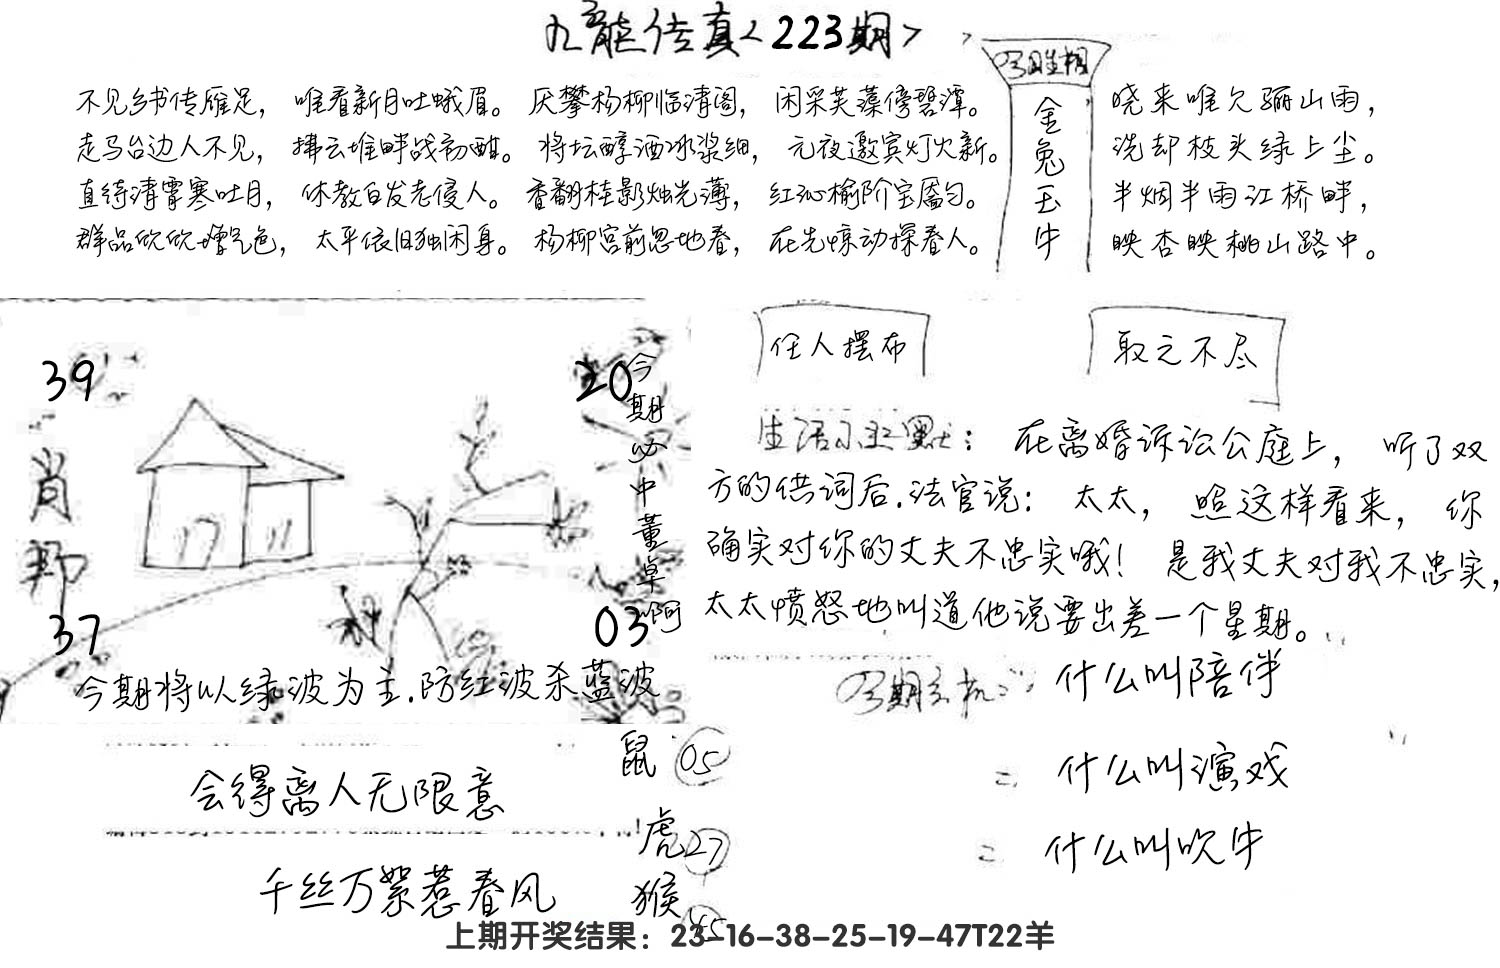 九龙传真<223期>
不见乡书传雁足，唯看新月吐蛾眉。厌攀杨柳临清阁，闲采芙蕖傍碧潭。
走马台边人不见，拂云堆畔战初酣。将坛醇酒冰浆细，元夜邀宾灯火新。
直待清霄寒吐月，休教白发老侵人。香翻桂影烛光薄，红沁榆阶宝靥匀。
群品欣欣增气色，太平依旧独闲身。杨柳宫前忽地春，在先惊动探春人。
金兔玉牛
晓来唯欠骊山雨，
洗却枝头绿上尘。
半烟半雨江桥畔，
映杏映桃山路中。
39
20
肖
37
03
今期必中董卓啊
今期将以绿波为主.防红波杀蓝波
任人摆布
取之不尽
生活小幽默：在离婚诉讼公庭上，听了双
方的供词后.法官说：太太，照这样看来，你
确实对你的丈夫不忠实哦！是我丈夫对我不忠实，
太太愤怒地叫道他说要出差一个星期。
什么叫陪伴
二 什么叫演戏
二 什么叫吹牛
会得离人无限意
千丝万絮惹春风
鼠 05
虎 27
猴 45
上期开奖结果：23-16-38-25-19-47T22羊